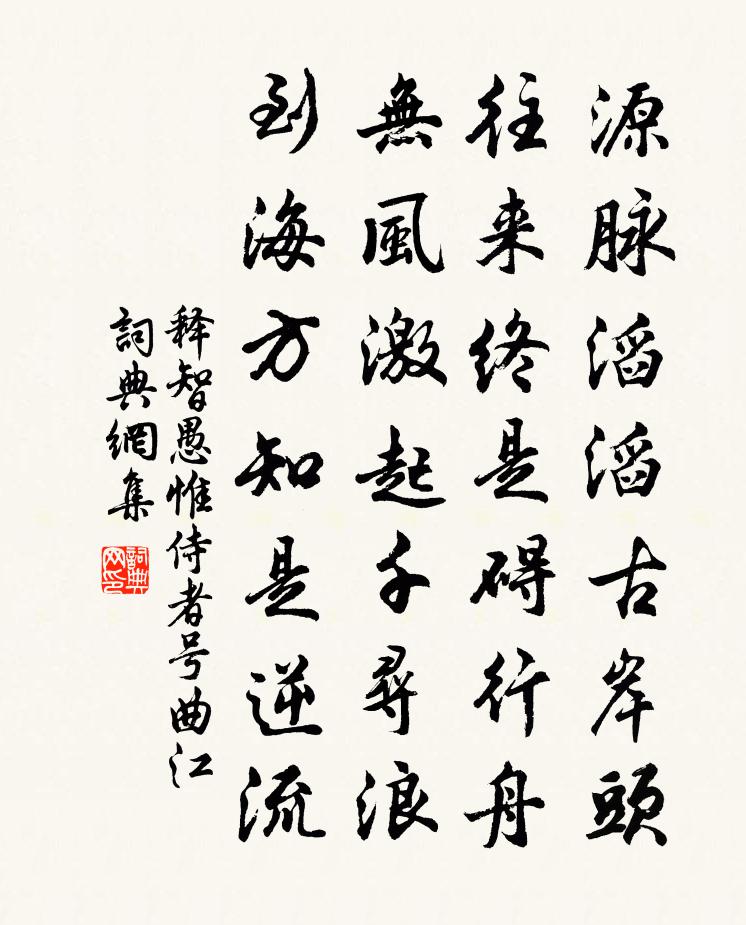 源脉滔滔古岸頭
往来终是碍行舟
無風激起千尋浪
到海方知是逆流
释智愚惟侍者号曲江
詞典網集
詞典网印